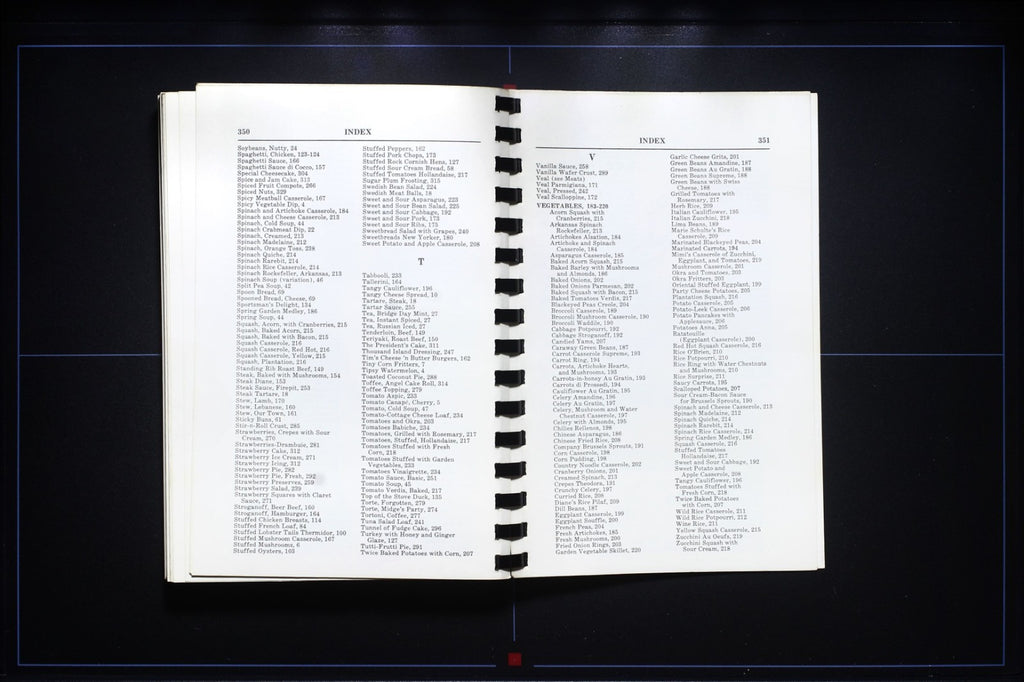 350
INDEX
Soybeans, Nutty, 34
Spaghetti, Chicken, 123-124
Spaghetti Sauce, 166
Spaghetti Sauce di Cocco, 157
Special Cheesecake, 304
Spice and Jam Cake, 313
Spiced Fruit Compote, 266
Spiced Nuts, 329
Spicy Meatball Casserole, 167
Spicy Vegetable Dip, 4
Spinach and Artichoke Casserole, 184
Spinach and Cheese Casserole, 213
Spinach, Cold Soup, 44
Spinach Crabmeat Dip, 22
Spinach, Creamed, 213
Spinach Madelaine, 212
Spinach, Orange Toss, 238
Spinach Quiche, 214
Spinach Rarebit, 214
Spinach Rice Casserole, 214
Spinach Rockefeller, Arkansas, 213
Spinach Soup (variation), 46
Split Pea Soup, 42
Spoon Bread, 69
Spooned Bread, Cheese, 69
Sportsman's Delight, 134
Spring Garden Medley, 186
Spring Soup, 44
Squash, Acorn, with Cranberries, 215
Squash, Baked Acorn, 215
Squash, Baked with Bacon, 215
Squash Casserole, 216
Squash Casserole, Red Hot, 216
Squash Casserole, Yellow, 215
Squash, Plantation, 216
Standing Rib Roast Beef, 149
Steak, Baked with Mushrooms, 154
Steak Diane, 153
Steak Sauce, Firepit, 253
Steak Tartare, 18
Stew, Lamb, 179
Stew, Lebanese, 160
Stew, Our Town, 161
Sticky Buns, 61
Stir-n-Roll Crust, 285
Strawberries, Crepes with Sour
Cream, 270
Strawberries-Drambuie, 281
Strawberry Cake, 312
Strawberry Ice Cream, 271
Strawberry Icing, 312
Strawberry Pie, 292
Strawberry Pie, Fresh, 292
Strawberry Preserves, 259
Strawberry Salad, 239
Strawberry Squares with Claret
Sauce, 271
Stroganoff, Beer Beef, 160
Stroganoff, Hamburger, 164
Stuffed Chicken Breasts, 114
Stuffed French Loaf, 84
Stuffed Lobster Tails Thermidor, 100
Stuffed Mushroom Casserole, 107
Stuffed Mushrooms, 6
Stuffed Oysters, 103
Stuffed Peppers, 162
Stuffed Pork Chops, 173
Stuffed Rock Cornish Hens, 127
Stuffed Sour Cream Bread, 58
Stuffed Tomatoes Hollandaise, 217
Sugar Plum Frosting, 315
Swedish Bean Salad, 224
Swedish Meat Balls, 18
Sweet and Sour Asparagus, 223
Sweet and Sour Bean Salad, 225
Sweet and Sour Cabbage, 192
Sweet and Sour Pork, 173
Sweet and Sour Ribs, 175
Sweetbread Salad with Grapes, 249
Sweetbreads New Yorker, 180
Sweet Potato and Apple Casserole, 208
T
Tabbooli, 233
Tallerini, 164
Tangy Cauliflower, 196
Tangy Cheese Spread, 10
Tartare, Steak, 18
Tartar Sauce, 255
Tea, Bridge Day Mint, 27
Tea, Instant Spiced, 27
Tea, Russian Iced, 27
Tenderloin, Beef, 149
Teriyaki, Roast Beef, 150
The President's Cake, 311
Thousand Island Dressing, 247
Tim's Cheese 'n Butter Burgers, 162
Tiny Corn Fritters, 7
Tipsy Watermelon, 4
Toasted Coconut Pie, 288
Toffee, Angel Cake Roll, 314
Toffee Topping, 279
Tomato Aspic, 233
Tomato Canapé, Cherry, 5
Tomato, Cold Soup, 47
Tomato-Cottage Cheese Loaf, 234
Tomatoes and Okra, 203
Tomatoes Babiche, 234
Tomatoes, Grilled with Rosemary, 217
Tomatoes, Stuffed, Hollandaise, 217
Tomatoes Stuffed with Fresh
Corn, 218
Tomatoes Stuffed with Garden
Vegetables, 233
Tomatoes Vinaigrette, 234
Tomato Sauce, Basic, 251
Tomato Soup, 45
Tomato Verdis, Baked, 217
Top of the Stove Duck, 135
Torte, Forgotten, 279
Torte, Midge's Party, 274
Tortoni, Coffee, 277
Tuna Salad Loaf, 241
Tunnel of Fudge Cake, 296
Turkey with Honey and Ginger
Glaze, 127
Tutti-Frutti Pie, 291
Twice Baked Potatoes with Corn, 207
INDEX
351
V
Vanilla Sauce, 258
Vanilla Wafer Crust, 289
Veal (see Meats)
Veal Parmigiana, 171
Veal, Pressed, 242
Veal Scalloppine, 172
VEGETABLES, 183-220
Acorn Squash with
Cranberries, 215
Arkansas Spinach
Rockefeller, 213
Artichokes Alsatian, 184
Artichoke and Spinach
Casserole, 184
Asparagus Casserole, 185
Baked Acorn Squash, 215
Baked Barley with Mushrooms
and Almonds, 186
Baked Onions, 202
Baked Onions Parmesan, 202
Baked Squash with Bacon, 215
Baked Tomatoes Verdis, 217
Blackeyed Peas Creole, 204
Broccoli Casserole, 189
Broccoli Mushroom Casserole, 190
Broccoli Waddile, 190
Cabbage Potpourri, 192
Cabbage Stroganoff, 192
Candied Yams, 207
Caraway Green Beans, 187
Carrot Casserole Supreme, 193
Carrot Ring, 194
Carrots, Artichoke Hearts,
and Mushrooms, 193
Carrots-in-honey Au Gratin, 193
Carrots di Prossedi, 194
Cauliflower Au Gratin, 195
Celery Amandine, 196
Celery Au Gratin, 197
Celery, Mushroom and Water
Chestnut Casserole, 197
Celery with Almonds, 195
Chilies Rellenos, 198
Chinese Asparagus, 186
Chinese Fried Rice, 208
Company Brussels Sprouts, 191
Corn Casserole, 198
Corn Pudding, 198
Country Noodle Casserole, 202
Cranberry Onions, 201
Creamed Spinach, 213
Crepes Theodora, 191
Crunchy Celery, 197
Curried Rice, 208
Diane's Rice Pilaf, 209
Dill Beans, 187
Eggplant Casserole, 199
Eggplant Souffle, 200
French Peas, 204
Fresh Artichokes, 185
Fresh Mushrooms, 200
Fried Onion Rings, 203
Garden Vegetable Skillet, 220
Garlic Cheese Grits, 201
Green Beans Amandine, 187
Green Beans Au Gratin, 188
Green Beans Supreme, 188
Green Beans with Swiss
Cheese, 188
Grilled Tomatoes with
Rosemary, 217
Herb Rice, 209
Italian Cauliflower, 195
Italian Zucchini, 218
Lima Beans, 189
Marie Schulte's Rice
Casserole, 209
Marinated Blackeyed Peas, 204
Marinated Carrots, 194
Mimi's Casserole of Zucchini,
Eggplant, and Tomatoes, 219
Mushroom Casserole, 201
Okra and Tomatoes, 203
Okra Fritters, 203
Oriental Stuffed Eggplant, 199
Party Cheese Potatoes, 205
Plantation Squash, 216
Potato Casserole, 205
Potato-Leek Casserole, 206
Potato Pancakes with
Applesauce, 206
Potatoes Anna, 205
Ratatouille
(Eggplant Casserole), 200
Red Hot Squash Casserole, 216
Rice O'Brien, 210
Rice Potpourri, 210
Rice Ring with Water Chestnuts
and Mushrooms, 210
Rice Surprise, 211
Saucy Carrots, 195
Scalloped Potatoes, 207
Sour Cream-Bacon Sauce
for Brussels Sprouts, 190
Spinach and Cheese Casserole, 213
Spinach Madelaine, 212
Spinach Quiche, 214
Spinach Rarebit, 214
Spinach Rice Casserole, 214
Spring Garden Medley, 186
Squash Casserole, 216
Stuffed Tomatoes
Hollandaise, 217
Sweet and Sour Cabbage, 192
Sweet Potato and
Apple Casserole, 208
Tangy Cauliflower, 196
Tomatoes Stuffed with
Fresh Corn, 218
Twice Baked Potatoes
with Corn, 207
Wild Rice Casserole, 211
Wild Rice Potpourri, 212
Wine Rice, 211
Yellow Squash Casserole, 215
Zucchini Au Oeufs, 219
Zucchini Squash with
Sour Cream, 218